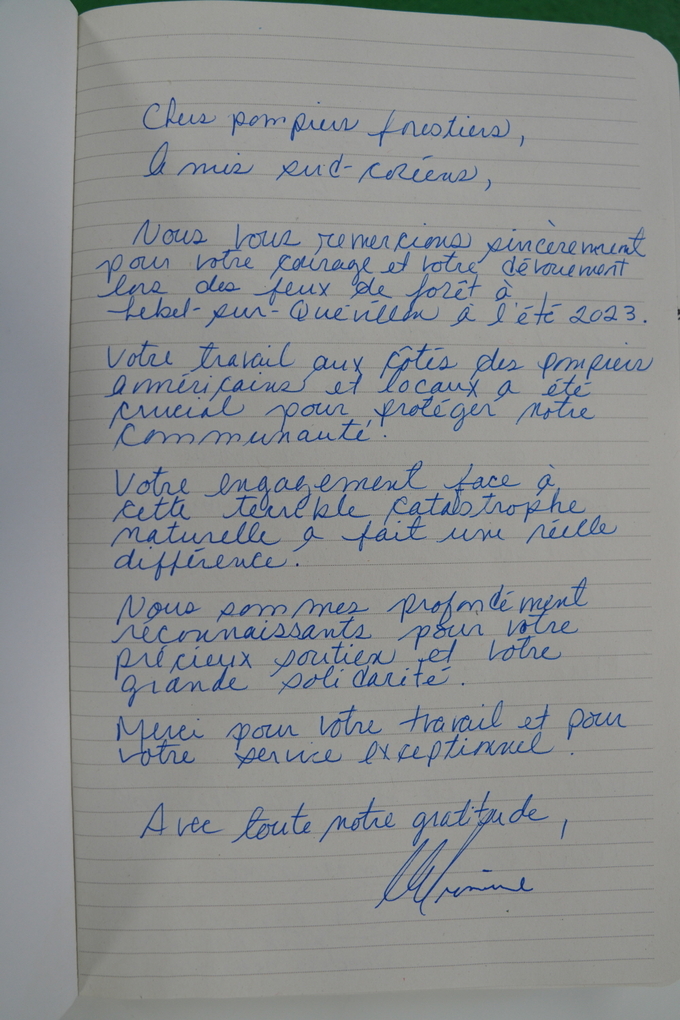 Chers pompiers forestiers,
Amis sud-coréens,
Nous vous remercions sincèrement
pour votre courage et votre dévouement
lors des feux de forêt à
Lebel-sur-Quévillon à l'été 2023.
Votre travail aux côtés des pompiers
américains et locaux a été
crucial pour protéger notre
communauté.
Votre engagement face à
cette terrible catastrophe
naturelle a fait une réelle
différence.
Nous sommes profondément
reconnaissants pour votre
précieux soutien et votre
grande solidarité.
Merci pour votre travail et pour
votre service exceptionnel.
Avec toute notre gratitude,